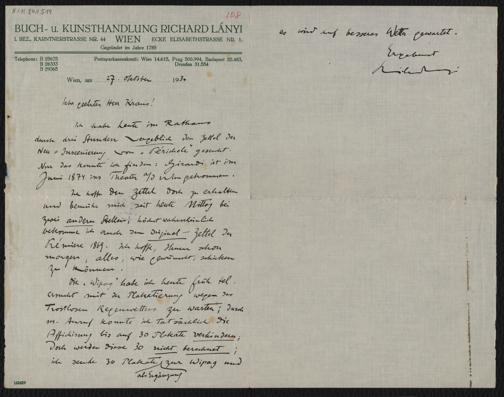 108
BUCH- u. KUNSTHANDLUNG RICHARD LÁNYI
I. BEZ., KÄRNTNERSTRASSE NR. 44 WIEN ECKE ELISABETHSTRASSE NR. 6.
Gegründet im Jahre 1785
Telephone: B 29675
B 26333
B 29365
Postsparkassenkonti: Wien 14.615, Prag 500.994, Budapest 30.463,
Dresden 31.554
Wien, am 27. Oktober 1930
Sehr geehrter Herr Kraus!
Ich habe heute im Rathaus
durch drei Stunden vergeblich den Zettel der
Neu-Inszenierung von „Perichole" gesucht.
Nur das konnte ich finden: Girardi ist im
Juni 1874 ins Theater a/d Wien gekommen.
Ich hoffe den Zettel doch zu erhalten
und bemühe mich seit heute Mittag bei
zwei andern Stellen; höchst wahrscheinlich
bekomme ich auch den Original-Zettel der
Première 1869. Ich hoffe, Ihnen schon
morgen, alles, wie gewünscht, schicken
zu können.
Die „Wipag" habe ich heute früh tel.
ersucht mit der Plakatierung wegen des
trostlosen Regenwetters zu warten; durch
m. Anruf konnte ich tatsächlich die
Affichierung bis auf 30 Plakate verhindern;
doch werden diese 30 nicht berechnet;
ich sende 30 Plakate zur Wipag und
als Ergänzung
es wird auf besseres Wetter gewartet.
Ergebenst